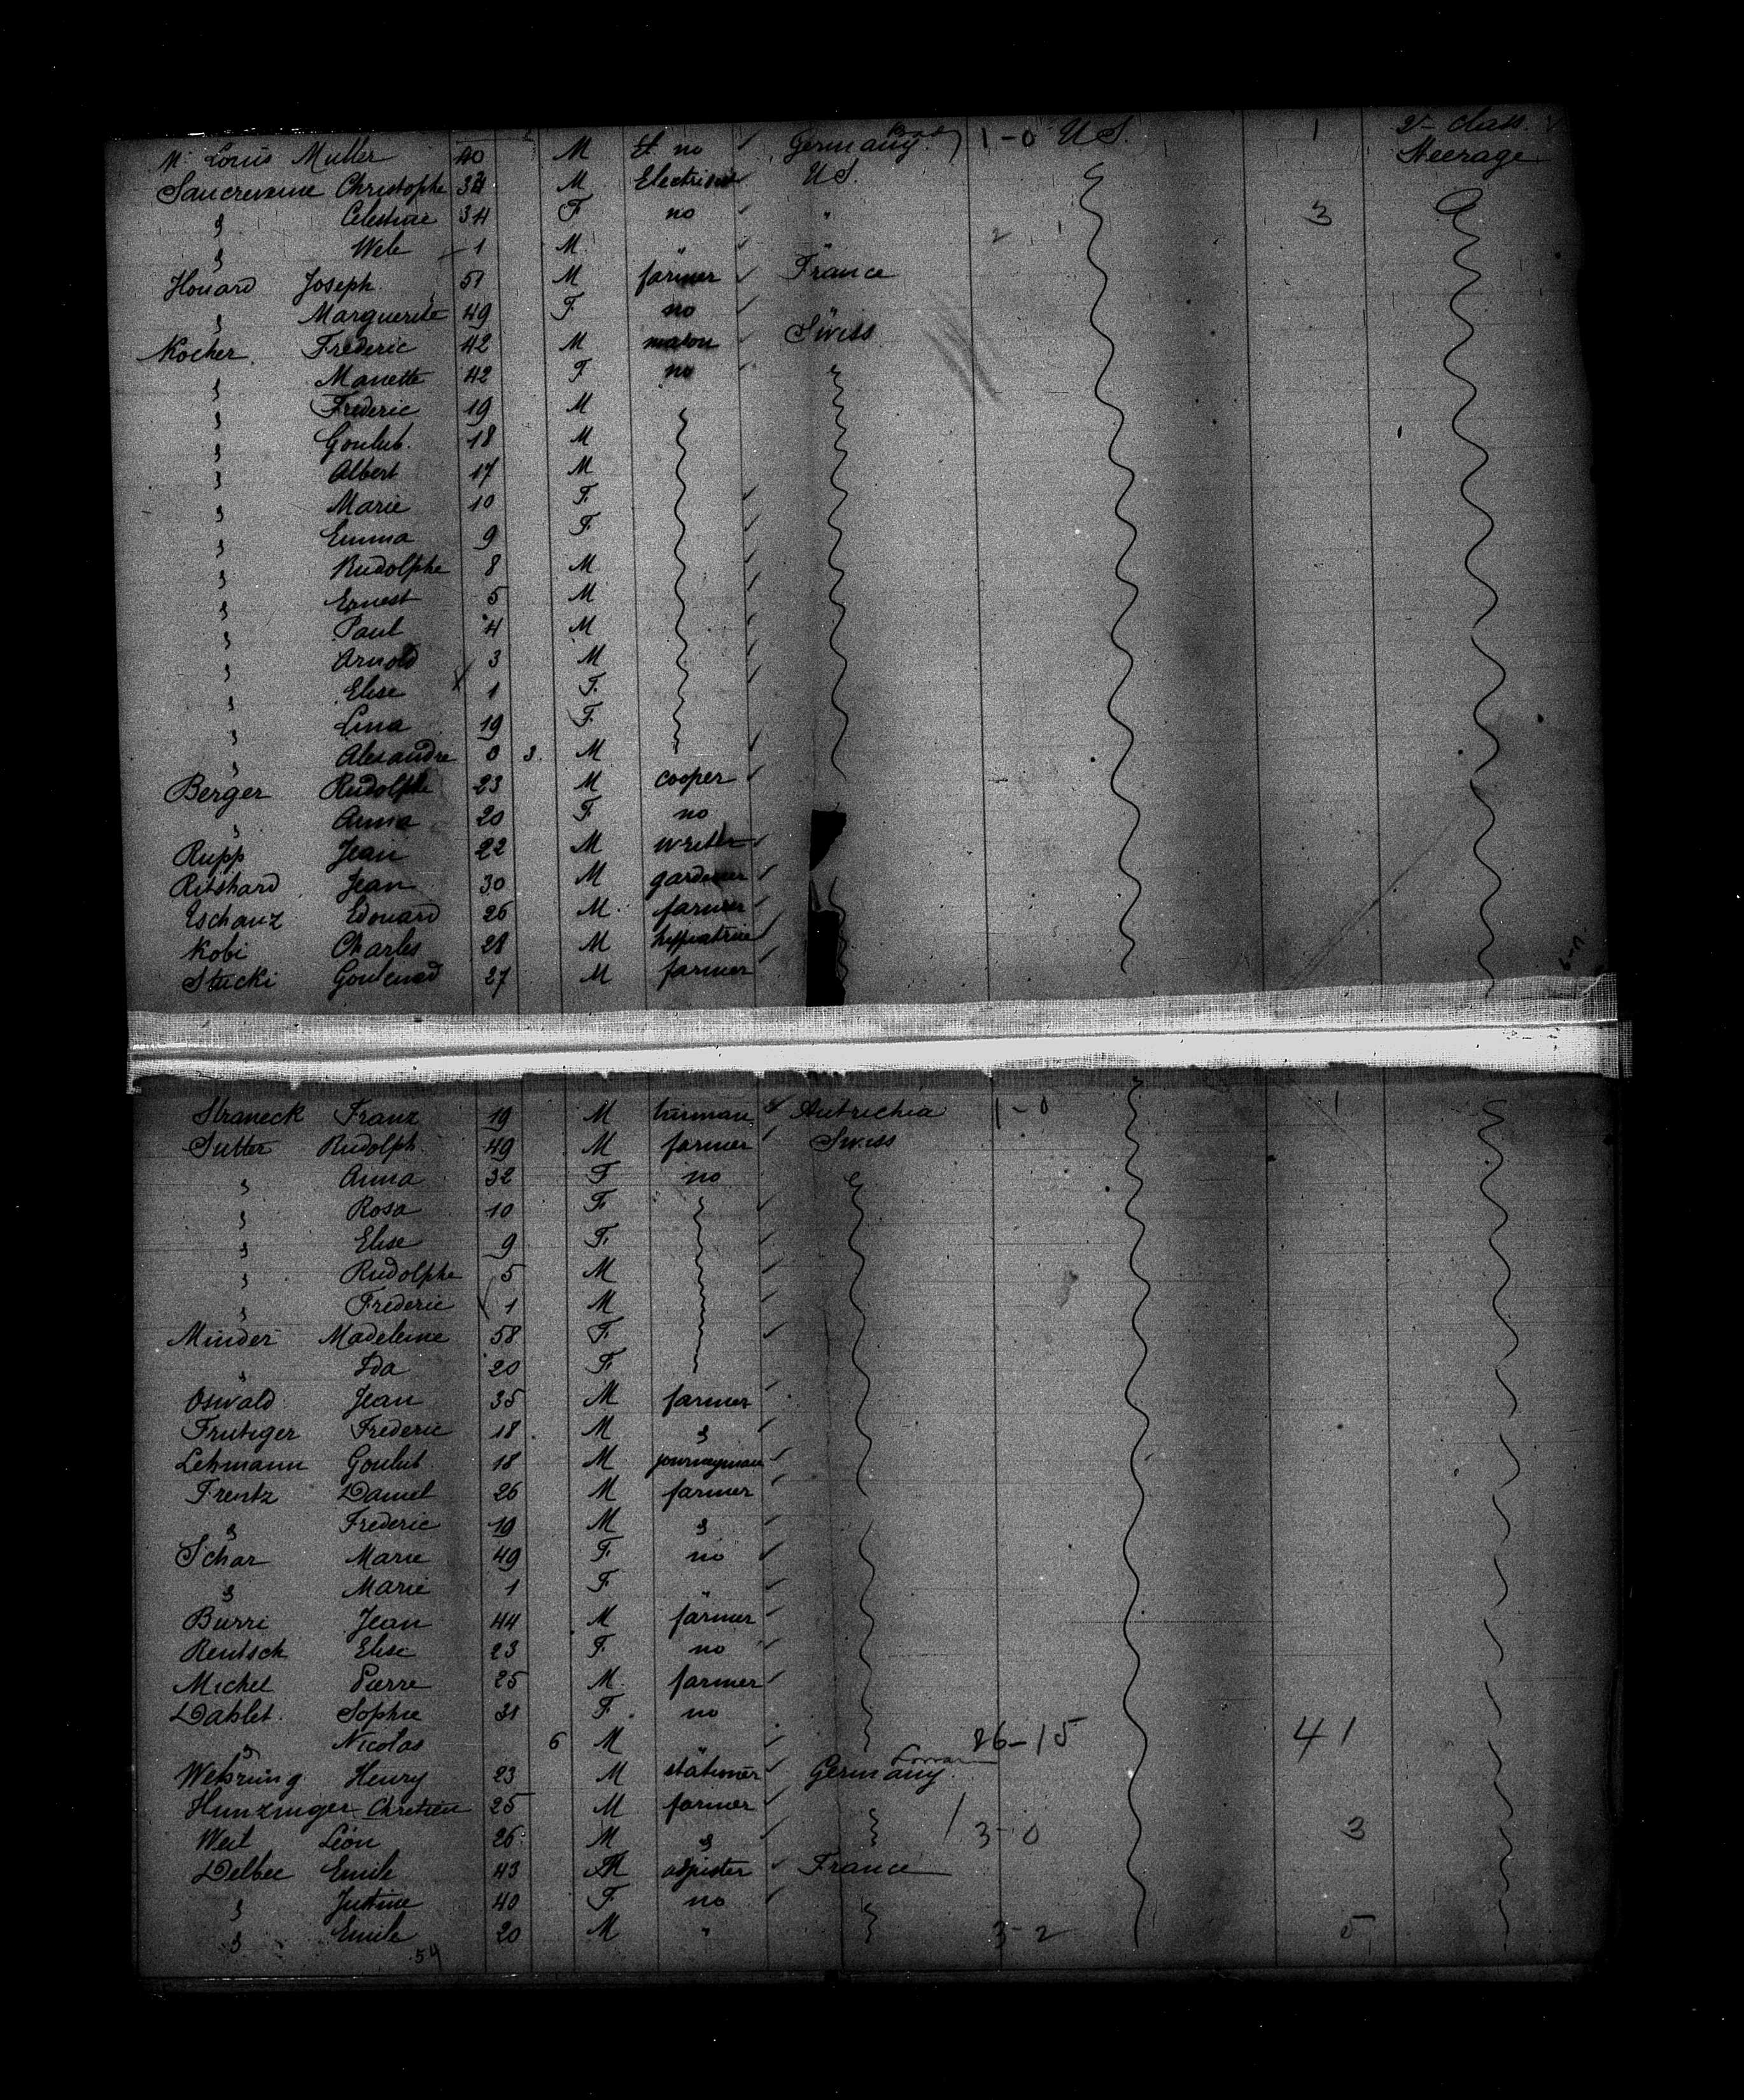 Mr Louis Muller 40 M no Germany 1-0 U S. 1 2d class
Christophe 34 M U S. Steerage
" Celestine 34 F no " 3
" 1 M " " 2
Houard Joseph 51 M farmer France
" Marguerite 49 F no "
Kocher Frederic 42 M mason Swiss
" Manette 42 F no
" Frederic 19 M
" Goulub. 18 M
" Albert 17 M
" Marie 10 F
" Emma 9 F
" Rudolphe 8 M
" Ernest 5 M
" Paul 4 M
" Arnold 3 M
" Elise 1 F
" Lina 19 F
" Alexandre 0 3. M
Berger Rudolphe 23 M cooper
" Anna 20 F no
Rupp Jean 22 M writer
Ritshard Jean 30 M gardener
Tschanz Edouard 26 M farmer
Kobi Charles 28 M
Stucki 27 M farmer
Straneck Franz 19 M Autrichia 1-0 1
Sutter Rudolph 49 M farmer Swiss
" Anna 32 F no
" Rosa 10 F
" Elise 9 F
" Rudolphe 5 M
" Frederic 1 M
Minder Madeleine 58 F
" Ida 20 F
Oswald Jean 35 M farmer
Frutiger Frederic 18 M "
Lehmann Goulub 18 M journeyman
Frentz Daniel 26 M farmer
" Frederic 19 M "
Schar Marie 49 F no
" Marie 1 F "
Burri Jean 44 M farmer
Rentsch Elise 23 F no
Michel Pierre 25 M farmer
Dablet Sophie 31 F no
" Nicolas 6 M " 26-15 41
Wehrung Henry 23 M stationer Germany
Hunzinger Chretien 25 M farmer
Weil Léon 26 M " 3-0 3
Delbec Emile 43 M adjuster France
" Justine 40 F no
" Emile 20 M " 3-2 5
54